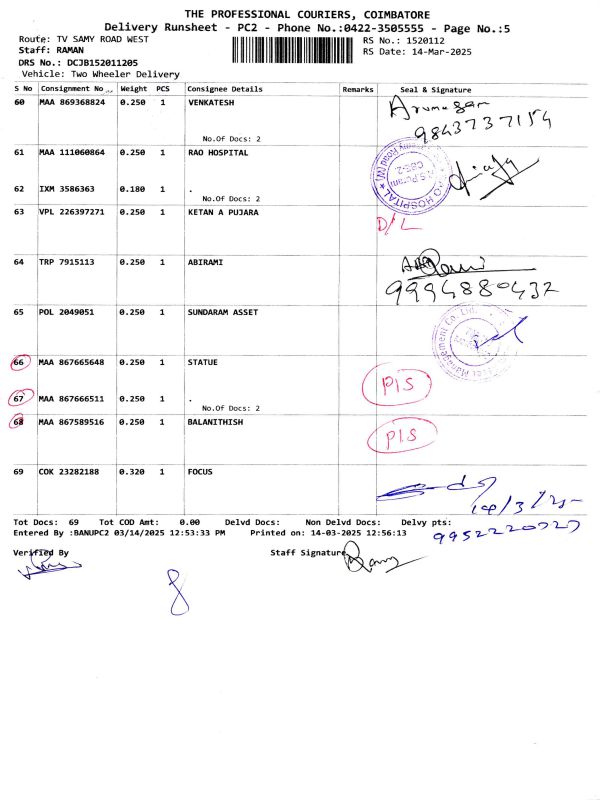 THE PROFESSIONAL COURIERS, COIMBATORE
Delivery Runsheet - PC2 - Phone No.:0422-3505555 - Page No.:5
Route: TV SAMY ROAD WEST
RS No.: 1520112
Staff: RAMAN
RS Date: 14-Mar-2025
DRS No.: DCJB152011205
Vehicle: Two Wheeler Delivery
S No Consignment No Weight PCS Consignee Details Remarks Seal & Signature
60 MAA 869368824 0.250 1 VENKATESH
Arumugam
9843737154
No.Of Docs: 2
61 MAA 111060864 0.250 1 RAO HOSPITAL
62 IXM 3586363 0.180 1 .
No.Of Docs: 2
63 VPL 226397271 0.250 1 KETAN A PUJARA
D/L
64 TRP 7915113 0.250 1 ABIRAMI
9994880432
65 POL 2049051 0.250 1 SUNDARAM ASSET
66 MAA 867665648 0.250 1 STATUE
PIS
67 MAA 867666511 0.250 1 .
No.Of Docs: 2
68 MAA 867589516 0.250 1 BALANITHISH
PIS
69 COK 23282188 0.320 1 FOCUS
14/3/25
Tot Docs: 69 Tot COD Amt: 0.00 Delvd Docs: Non Delvd Docs: Delvy pts:
Entered By :BANUPC2 03/14/2025 12:53:33 PM Printed on: 14-03-2025 12:56:13
Verified By Staff Signature